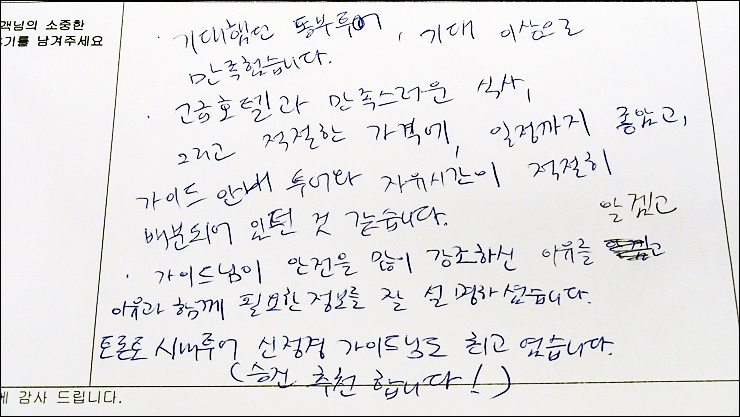 객님의 소중한
기를 남겨주세요
· 기대했던 동부투어, 기대 이상으로
만족했습니다.
· 고급호텔과 만족스러운 식사,
그리고 적절한 가격에, 일정까지 좋았고,
가이드 안내 투어와 자유시간이 적절히
배분되어 있던 것 같습니다.
알겠고
· 가이드님이 안전을 많이 강조하신 이유를 고
이유과 함께 필요한 정보를 잘 설명하셨습니다.
토론토 시내투어 신정경 가이드님도 최고 였습니다.
(승진 추천 합니다!)
에 감사 드립니다.